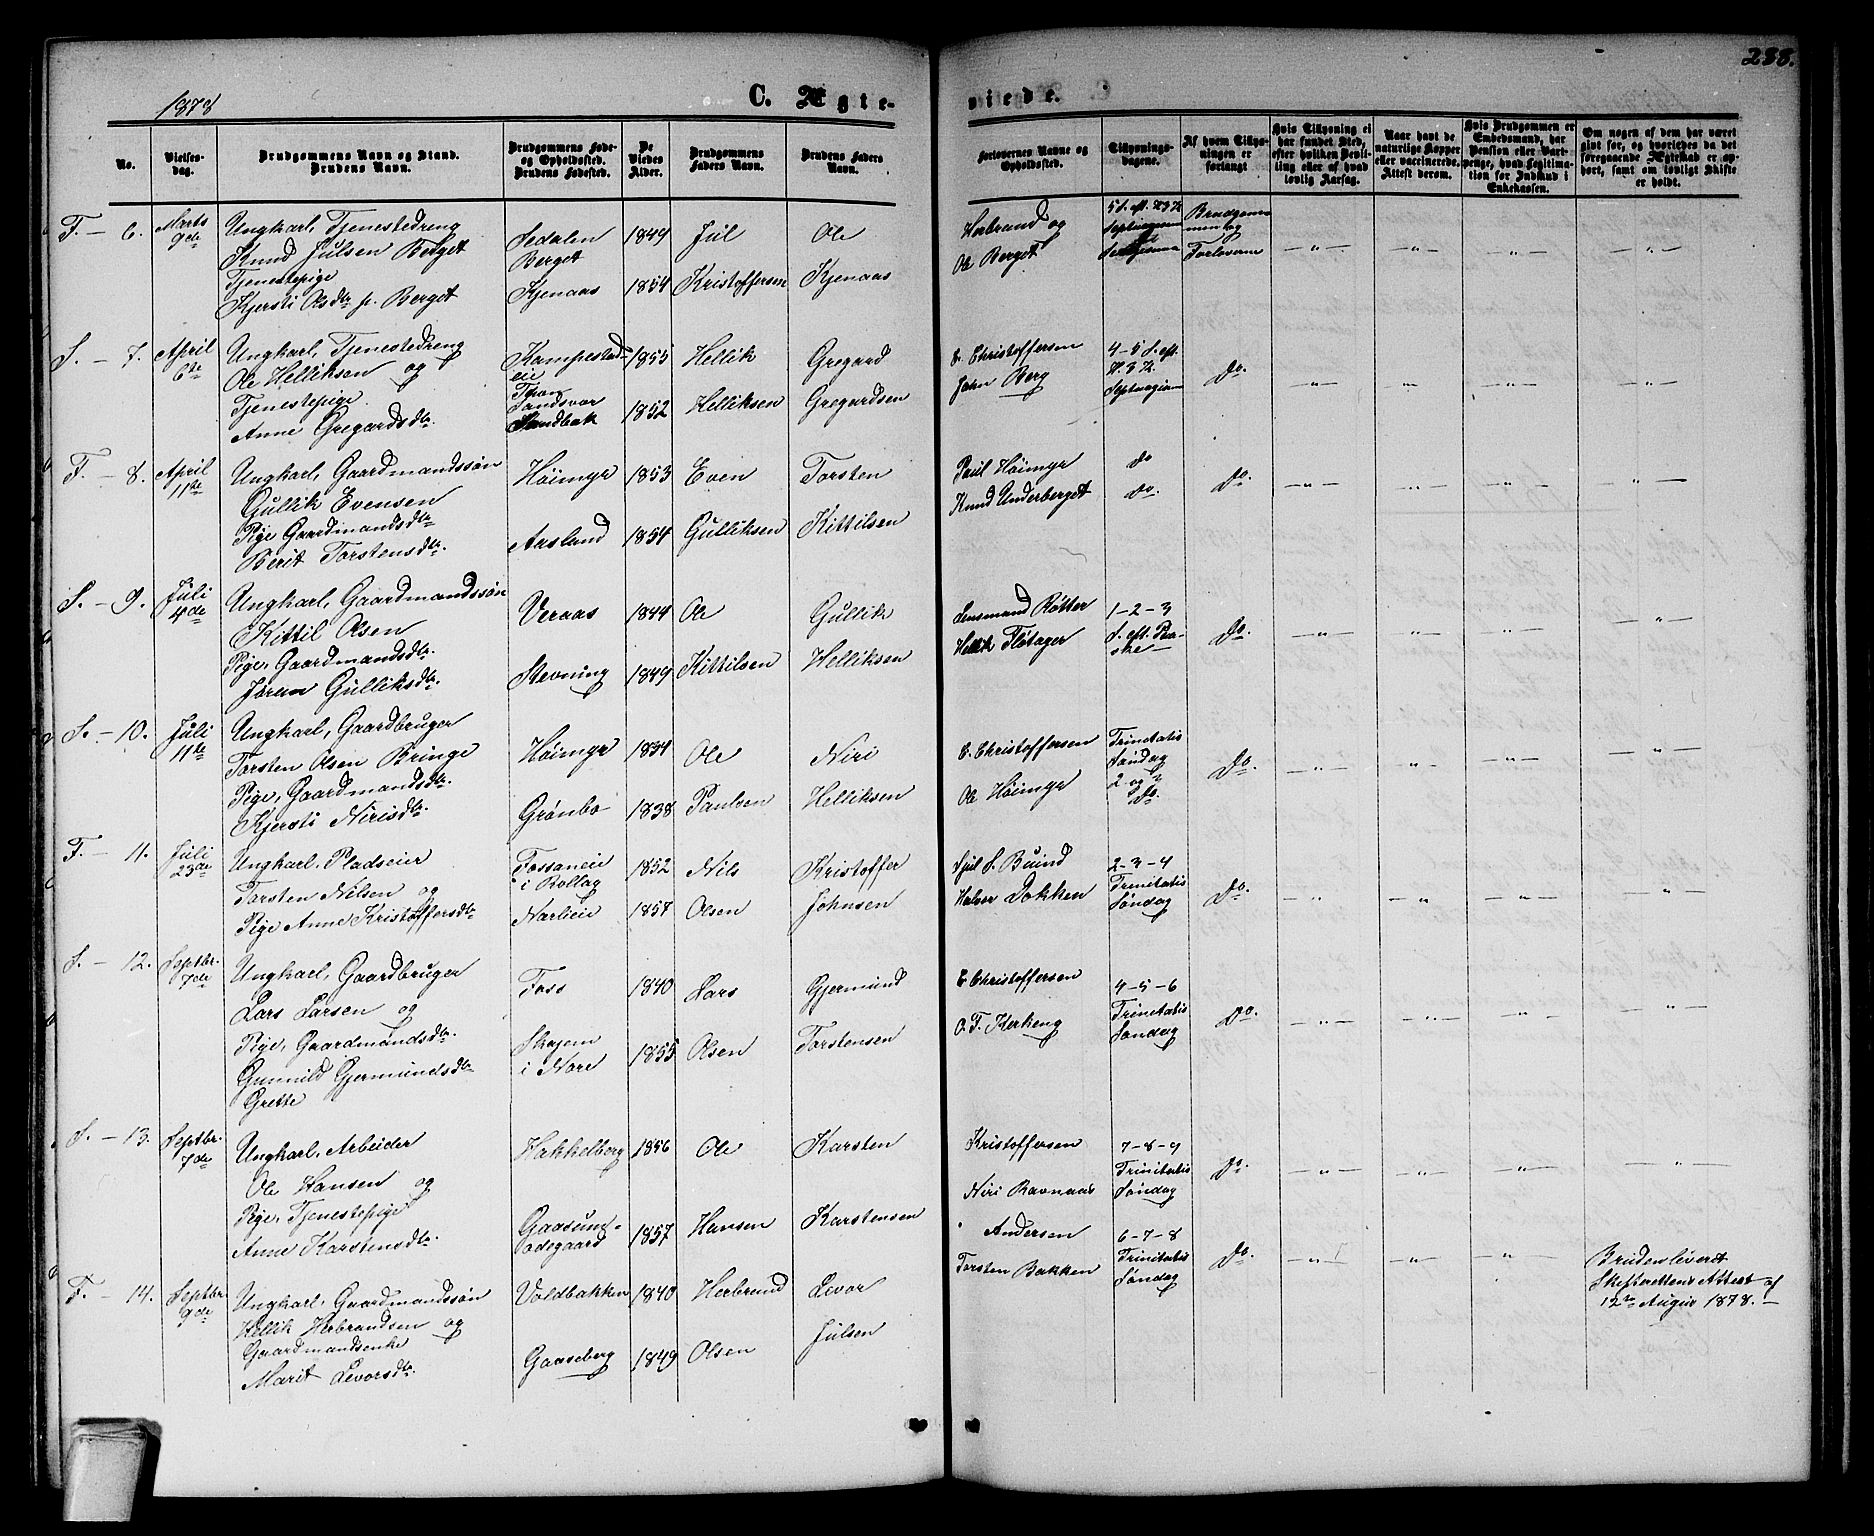 1878
C. Ægte-
viede.
288.
No.
Vielses-
dag.
Brudgommens Navn og Stand.
Brudens Navn.
Brudgommens Føde-
og Opholdssted.
Brudens Fødested.
De
Viedes
Alder.
Brudgommens
Faders Navn.
Brudens Faders
Navn.
Forlovernes Navne og
Opholdssted.
Tillysnings-
dagene.
Af hvem Tillys-
ningen er
forlangt
Hvis Tillysning ei
har fundet Sted,
efter hvilken Bevil-
ling eller af hvad
lovlig Aarsag.
Naar havt de
naturlige Kopper
eller vaccinerede.
Attest derom.
Hvis Brudgommen er
Embedsmand, har
Pension eller Vart-
penge, hvad Legitima-
tion for Indskud i
Enkekassen.
Om nogen af dem har været
givt før, og hvorledes da det
foregaaende Ægteskab er op-
hørt, samt om lovligt Skifte
er holdt.
F. — 6.
Marts
9de
Ungkarl, Tjenestedreng
Knud Julsen Berget
Tjenestepige
Kjersti Olsdtr p. Berget
Sedalen
Berget
Kjenaas
1849
1854
Jul
Kristoffersen
Ole
Kjenaas
Herbrand og
Ole Berget
5 S. eft. H 3 K
Septuagesima
Brudgom-
men og
Forloverne
S. — 7.
April
6te
Ungkarl, Tjenestedreng
Ole Helliksen og
Tjenestepige
Anne Gregardsdtr.
Kampestad-
eie
Sandsvær
Sandbæk
1855
1852
Hellik
Helliksen
Gregard
Gregardsen
E. Christoffersen
John Berg
4-5 S. eft.
H. 3 K.
Septuagesima
Do.
F. — 8.
April
11te
Ungkarl, Gaardmandssøn
Gullik Evensen
Pige Gaardmandsdtr
Berit Torstensdtr.
Höimyr
Aasland
1853
1854
Even
Gulliksen
Torsten
Kittilsen
Paul Höimyr
Knud Underberget
do
do.
Do.
S. — 9.
Juli
4de
Ungkarl, Gaardmandssøn
Kittil Olsen
Pige, Gaardmandsdtr.
Jøran Gulliksdtr.
Veraas
Stevning
1844
1849
Ole
Kittilsen
Gullik
Helliksen
Lensmand Røtter
Hellik Fløtager
1-2-3
S. eft. Paa-
ske
Do.
S. — 10.
Juli
11te
Ungkarl, Gaardbruger
Torsten Olsen Bringe
Pige, Gaardmandsdtr.
Kjersti Nirisdtr.
Höimyr
Grønbo
1834
1838
Ole
Paulsen
Niri
Helliksen
E. Christoffersen
Ole Höimyr
Trinitatis
Søndag
2 og 3
do.
Do.
F. — 11.
Juli
23de
Ungkarl, Pladseier
Torsten Nilsen og
Pige Anne Kristoffersdtr
Fossaneie
i Rollag
Narlieie
1852
1857
Nils
Olsen
Kristoffer
Johnsen
Jul S. Buind
Halvor Dokken
2-3-4
Trinitatis
Søndag
Do.
S. — 12.
Septbr.
7de
Ungkarl, Gaardbruger
Lars Larsen og
Pige, Gaardmandsdtr.
Gunnild Gjermundsdtr
Grette
Foss
Skajem
i Nore
1840
1855
Lars
Olsen
Gjermund
Torstensen
E Christoffersen
O. T. Kirkeng
4-5-6
Trinitatis
Søndag
Do.
S. — 13.
Septbr.
7de
Ungkarl, Arbeider
Ole Hansen og
Pige, Tjenestepige
Anne Karstensdtr.
Hakkelberg
Gaasung-
ødegaard
1856
1857
Ole
Hansen
Karsten
Karstensen
Kristoffersen
Niri Ravnaas
7-8-9
Trinitatis
Søndag
Do.
F. — 14.
Septbr
9de
Ungkarl, Gaardmandssøn
Hellik Herbrandsen og
Gaardmandsenke
Marit Levorsdtr.
Voldbakken
Gaaseberg
1840
1849
Herbrand
Olsen
Levor
Julsen
Andersen
Torsten Bakken
6-7-8
Trinitatis
Søndag
Do.
Bruden leveret
Skifterettens Attest af
12te August 1878. —